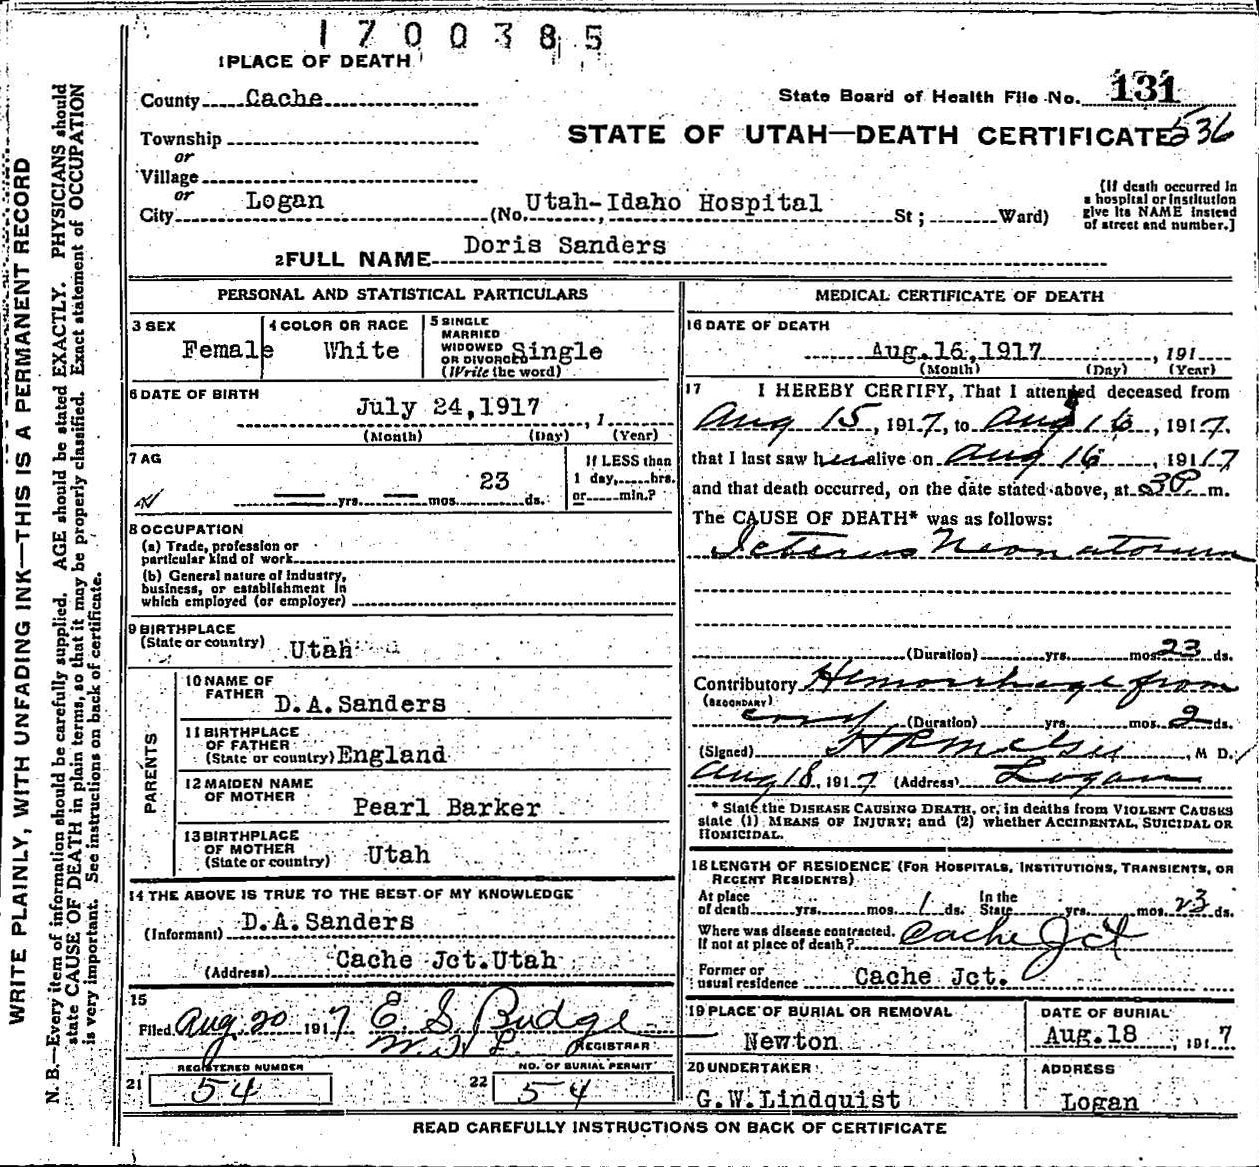 1700385
1 PLACE OF DEATH
County Cache
State Board of Health File No. 131
Township
STATE OF UTAH—DEATH CERTIFICATE 536
or
Village
or
City Logan (No. Utah-Idaho Hospital St; Ward)
[If death occurred in
a hospital or institution
give its NAME instead
of street and number.]
2 FULL NAME Doris Sanders
PERSONAL AND STATISTICAL PARTICULARS
3 SEX
Female
4 COLOR OR RACE
White
5 SINGLE
MARRIED
WIDOWED
OR DIVORCED Single
(Write the word)
6 DATE OF BIRTH
July 24, 1917 , 1
(Month) (Day) (Year)
7 AG
— yrs. — mos. 23 ds.
If LESS than
1 day, hrs.
or min.?
8 OCCUPATION
(a) Trade, profession or
particular kind of work
(b) General nature of industry,
business, or establishment in
which employed (or employer)
9 BIRTHPLACE
(State or country) Utah
PARENTS
10 NAME OF
FATHER D.A.Sanders
11 BIRTHPLACE
OF FATHER
(State or country) England
12 MAIDEN NAME
OF MOTHER Pearl Barker
13 BIRTHPLACE
OF MOTHER
(State or country) Utah
14 THE ABOVE IS TRUE TO THE BEST OF MY KNOWLEDGE
(Informant) D.A.Sanders
(Address) Cache Jct.Utah
15
Filed Aug. 20 1917 E. S. Budge
REGISTRAR
REGISTERED NUMBER
21 54
NO. OF BURIAL PERMIT
22 54
MEDICAL CERTIFICATE OF DEATH
16 DATE OF DEATH
Aug.16,1917 , 191
(Month) (Day) (Year)
17 I HEREBY CERTIFY, That I attended deceased from
Aug 15, 1917, to Aug 16, 1917.
that I last saw her alive on Aug 16, 19117
and that death occurred, on the date stated above, at 3P m.
The CAUSE OF DEATH* was as follows:
Icterus Neonatorum
(Duration) yrs. mos. 23 ds.
Contributory Hemorrhage from
(SECONDARY)
cord (Duration) yrs. mos. 2 ds.
(Signed) M D.
Aug 18, 1917 (Address) Logan
* State the DISEASE CAUSING DEATH, or, in deaths from VIOLENT CAUSES
state (1) MEANS OF INJURY; and (2) whether ACCIDENTAL, SUICIDAL OR
HOMICIDAL.
18 LENGTH OF RESIDENCE (FOR HOSPITALS, INSTITUTIONS, TRANSIENTS, OR
RECENT RESIDENTS)
At place
of death yrs. mos. 1 ds.
In the
State yrs. mos. 23 ds.
Where was disease contracted.
If not at place of death? Cache Jct
Former or
usual residence Cache Jct.
19 PLACE OF BURIAL OR REMOVAL
Newton
DATE OF BURIAL
Aug.18 , 1917
20 UNDERTAKER
G.W.Lindquist
ADDRESS
Logan
READ CAREFULLY INSTRUCTIONS ON BACK OF CERTIFICATE
WRITE PLAINLY, WITH UNFADING INK—THIS IS A PERMANENT RECORD
N. B.—Every item of information should be carefully supplied. AGE should be stated EXACTLY. PHYSICIANS should
state CAUSE OF DEATH in plain terms, so that it may be properly classified. Exact statement of OCCUPATION
is very important. See instructions on back of certificate.